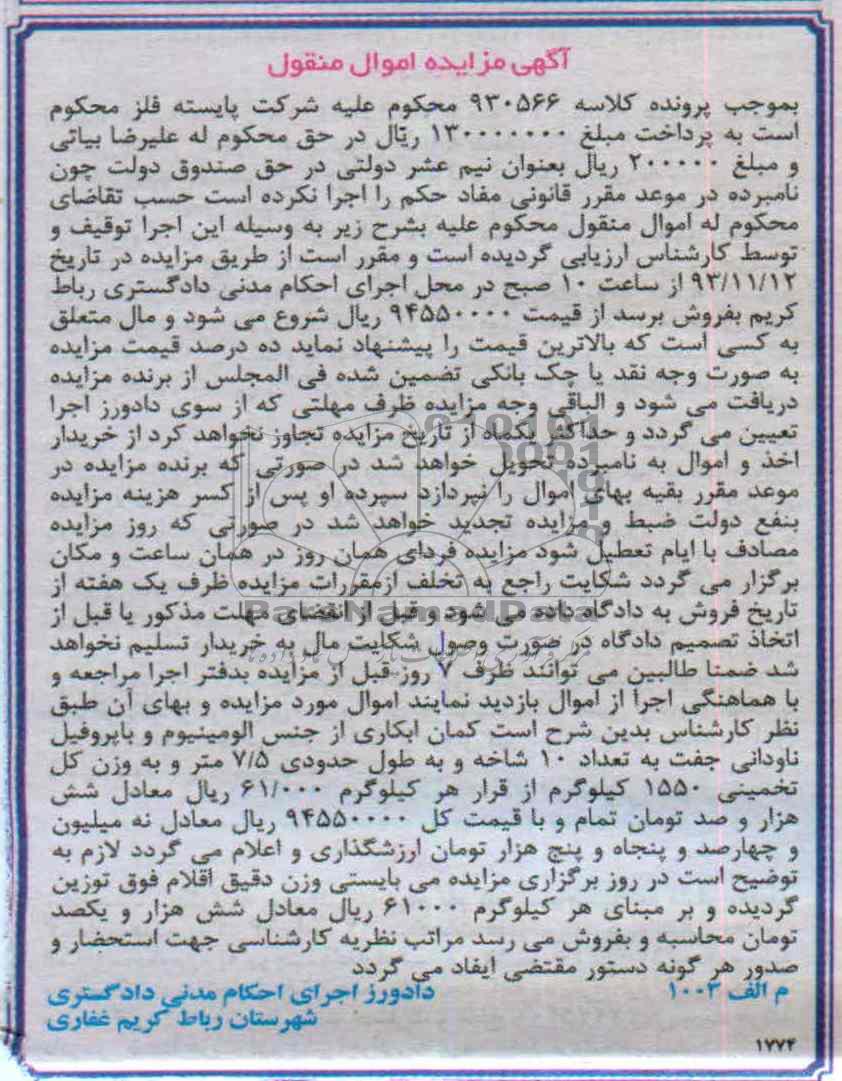 آگهی مزایده اموال منقول
بموجب پرونده کلاسه ۹۳۰۵۶۶ محکوم علیه شرکت پایسته فلز محکوم
است به پرداخت مبلغ ۱۳۰۰۰۰۰۰۰ ریال در حق محکوم له علیرضا بیاتی
و مبلغ ۲۰۰۰۰۰ ریال بعنوان نیم عشر دولتی در حق صندوق دولت چون
نامبرده در موعد مقرر قانونی مفاد حکم را اجرا نکرده است حسب تقاضای
محکوم له اموال منقول محکوم علیه بشرح زیر به وسیله این اجرا توقیف و
توسط کارشناس ارزیابی گردیده است و مقرر است از طریق مزایده در تاریخ
۹۳/۱۱/۱۲ از ساعت ۱۰ صبح در محل اجرای احکام مدنی دادگستری رباط
کریم بفروش برسد از قیمت ۹۴۵۵۰۰۰۰ ریال شروع می شود و مال متعلق
به کسی است که بالاترین قیمت را پیشنهاد نماید ده درصد قیمت مزایده
به صورت وجه نقد یا چک بانکی تضمین شده فی المجلس از برنده مزایده
دریافت می شود و الباقی وجه مزایده ظرف مهلتی که از سوی دادورز اجرا
تعیین می گردد و حداکثر یکماه از تاریخ مزایده تجاوز نخواهد کرد از خریدار
اخذ و اموال به نامبرده تحویل خواهد شد در صورتی که برنده مزایده در
موعد مقرر بقیه بهای اموال را نپردازد سپرده او پس از کسر هزینه مزایده
بنفع دولت ضبط و مزایده تجدید خواهد شد در صورتی که روز مزایده
مصادف با ایام تعطیل شود مزایده فردای همان روز در همان ساعت و مکان
برگزار می گردد شکایت راجع به تخلف ازمقررات مزایده ظرف یک هفته از
تاریخ فروش به دادگاه داده می شود و قبل از انقضای مهلت مذکور یا قبل از
اتخاذ تصمیم دادگاه در صورت وصول شکایت مال به خریدار تسلیم نخواهد
شد ضمنا طالبین می توانند ظرف ۷ روز قبل از مزایده بدفتر اجرا مراجعه و
با هماهنگی اجرا از اموال بازدید نمایند اموال مورد مزایده و بهای آن طبق
نظر کارشناس بدین شرح است کمان ابکاری از جنس الومینیوم و باپروفیل
ناودانی جفت به تعداد ۱۰ شاخه و به طول حدودی ۷/۵ متر و به وزن کل
تخمینی ۱۵۵۰ کیلوگرم از قرار هر کیلوگرم ۶۱/۰۰۰ ریال معادل شش
هزار و صد تومان تمام و با قیمت کل ۹۴۵۵۰۰۰۰ ریال معادل نه میلیون
و چهارصد و پنجاه و پنج هزار تومان ارزشگذاری و اعلام می گردد لازم به
توضیح است در روز برگزاری مزایده می بایستی وزن دقیق اقلام فوق توزین
گردیده و بر مبنای هر کیلوگرم ۶۱۰۰۰ ریال معادل شش هزار و یکصد
تومان محاسبه و بفروش می رسد مراتب نظریه کارشناسی جهت استحضار و
صدور هر گونه دستور مقتضی ایفاد می گردد
م الف ۱۰۰۳ دادورز اجرای احکام مدنی دادگستری
شهرستان رباط کریم غفاری
۱۷۷۴
ParsNamadData